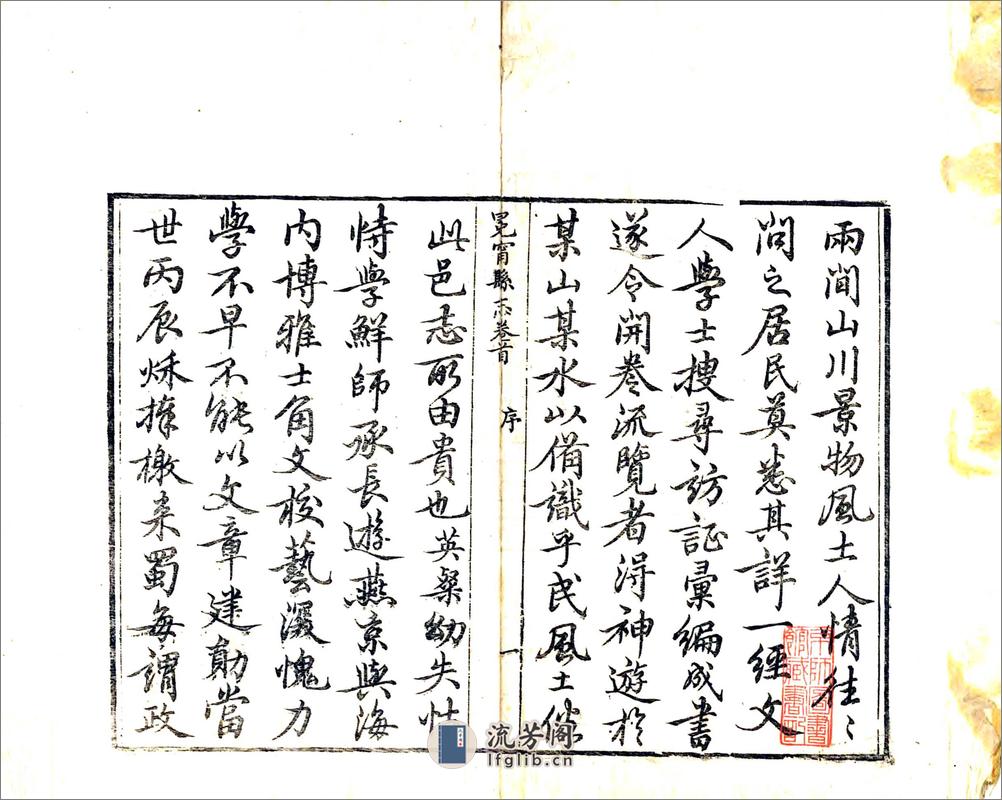 兩間山川景物風土人情往〻
問之居民莫悉其詳一經文
人學士搜尋訪證彙編成書
遂令開卷流覽者淂神遊於
某山某水以備識乎民風土俗
冕甯縣志卷首 序 一
此邑志所由貴也英粲幼失怙
恃學鮮師承長遊燕京與海
内博雅士角文校藝深愧力
學不早不能以文章建勳當
世丙辰秋捧檄來蜀每謂政
流芳阁
lfglib.cn